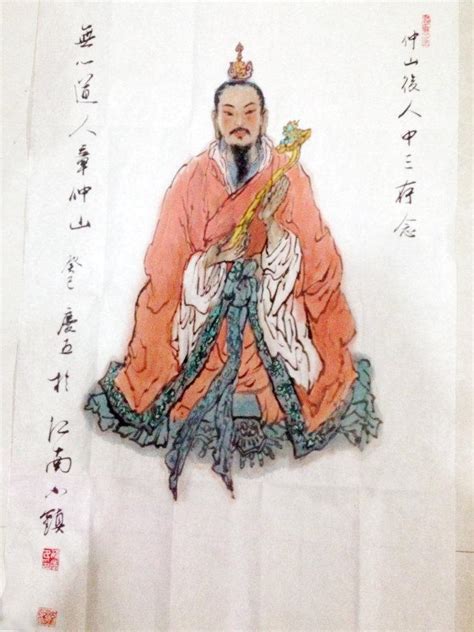 仲山後人中三存念
無心道人章仲山 癸巳 慶五於江南小鎮